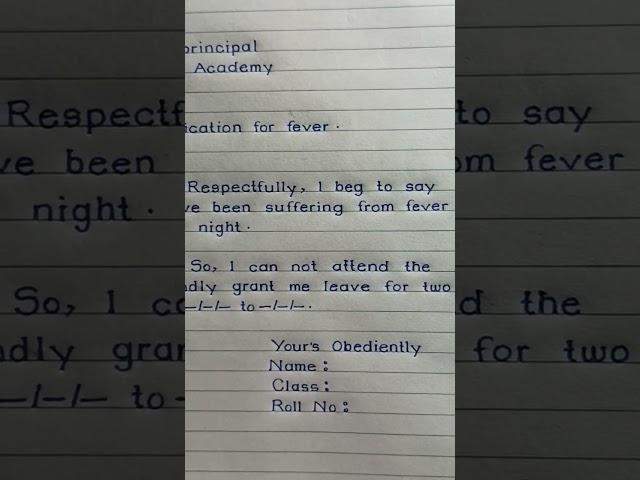 principal
Academy
ication for fever.
Respectfully, I beg to say
ve been suffering from fever
night.
So, I can not attend the
dly grant me leave for two
-/-/- to -/-/-.
Your's Obediently
Name:
Class:
Roll No: